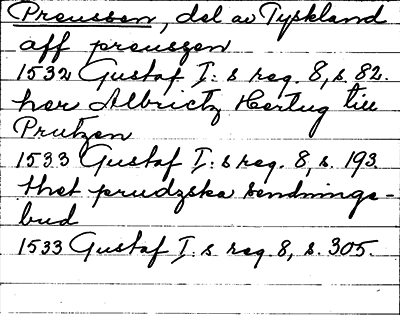 Preussen, del av Tyskland
aff preuszen
1532 Gustaf I:s reg. 8, s. 82.
her Albrictz Hertug till
Prutzen
1533 Gustaf I:s reg. 8, s. 193.
thet prudzska sendnings-
bud
1533 Gustaf I:s reg. 8, s. 305.